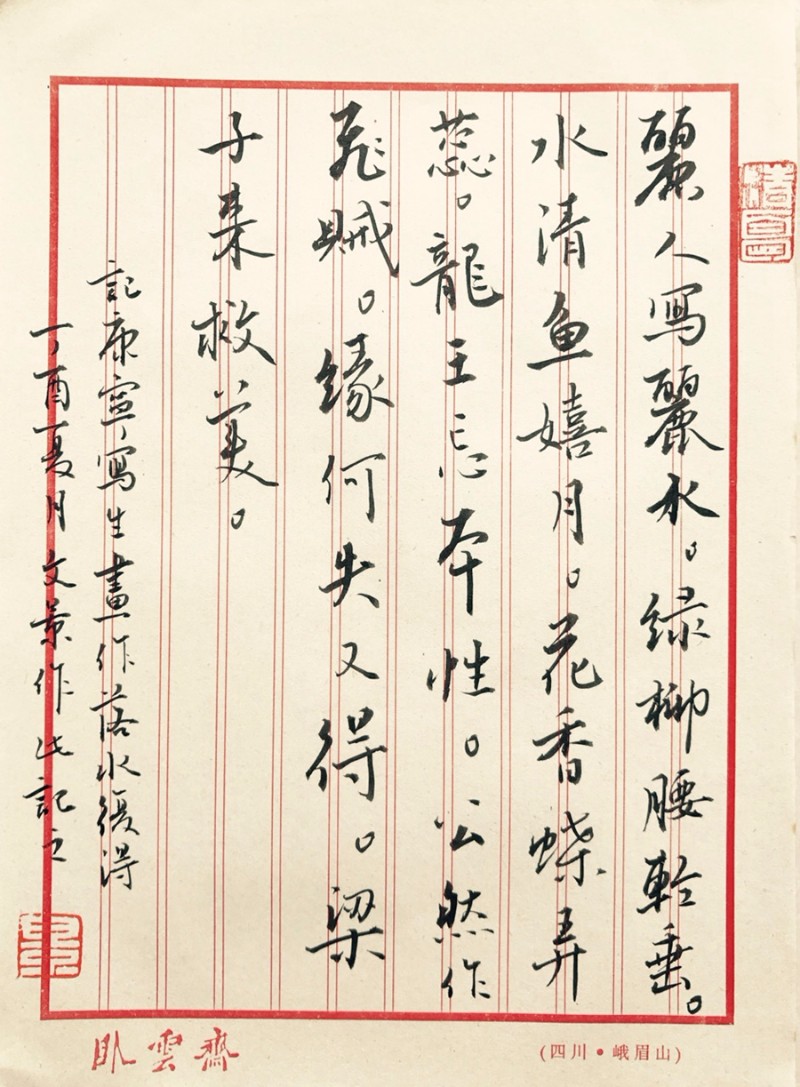 麗人寫麗水。緑柳腰輕垂。
水清鱼嬉月。花香蝶弄
蕊。龍王忘本性。公然作
飛賊。缘何失又得。梁
子来救美。
記康寧寫生畫作落水復得
丁酉夏月文景作此記之
卧雲齋
(四川•峨眉山)